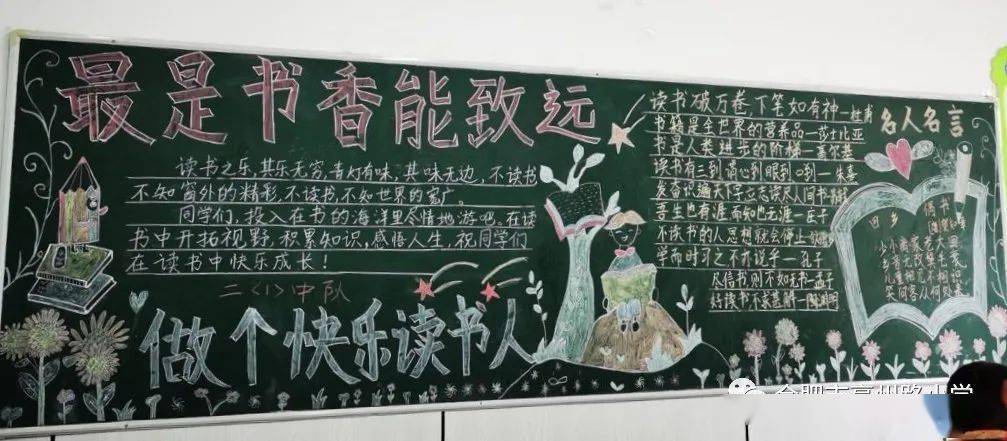 最是书香能致远
读书之乐,其乐无穷,青灯有味,其味无边,不读书
不知窗外的精彩,不读书,不知世界的宽广。
同学们,投入在书的海洋里尽情地游吧。在读
书中开拓视野,积累知识,感悟人生,祝同学们
在读书中快乐成长!
二〈1〉中队
做个快乐读书人
读书破万卷下笔如有神—杜甫
书籍是全世界的营养品—莎士比亚
书是人类进步的阶梯—高尔基
读书有三到 心到眼到口到—朱熹
发奋识遍天下字立志读尽人间书
吾生也有涯而知也无涯—庄子
不读书的人思想就会停止
学而时习之不亦说乎—孔子
尽信书,则不如无书—孟子
好读书不求甚解—陶渊明
名人名言
回乡偶书
少小离家老大回
乡音无改鬓毛衰
儿童相见不相识
笑问客从何处来
合肥市亳州路小学